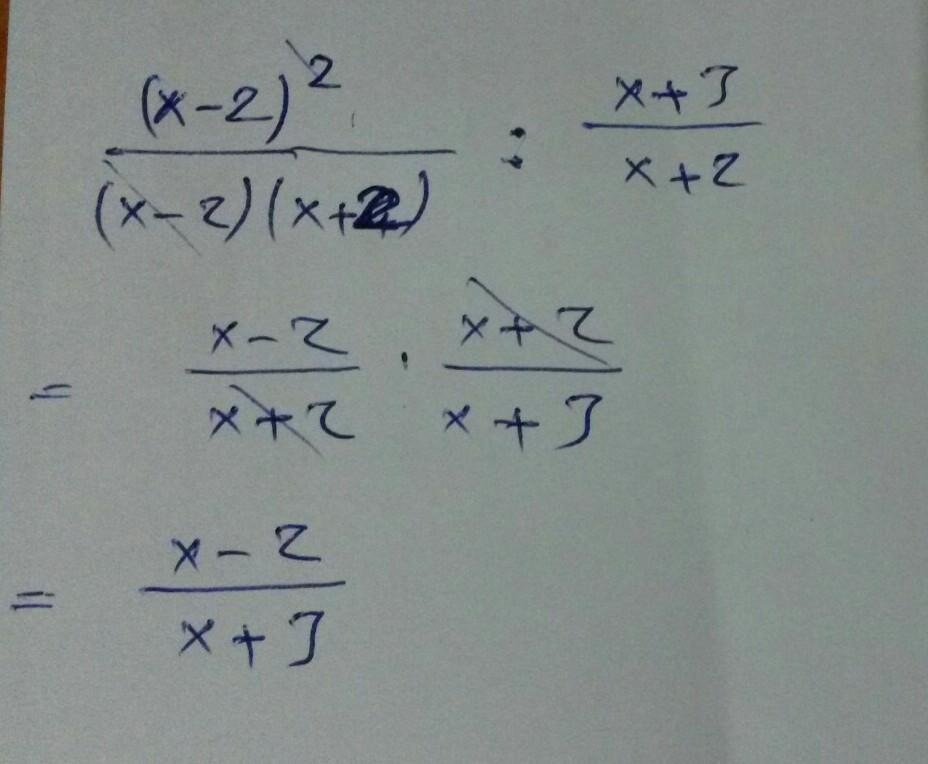 (x-2)² / (x-2)(x+2) : x+3 / x+2
= x-2 / x+2 · x+2 / x+3
= x-2 / x+3